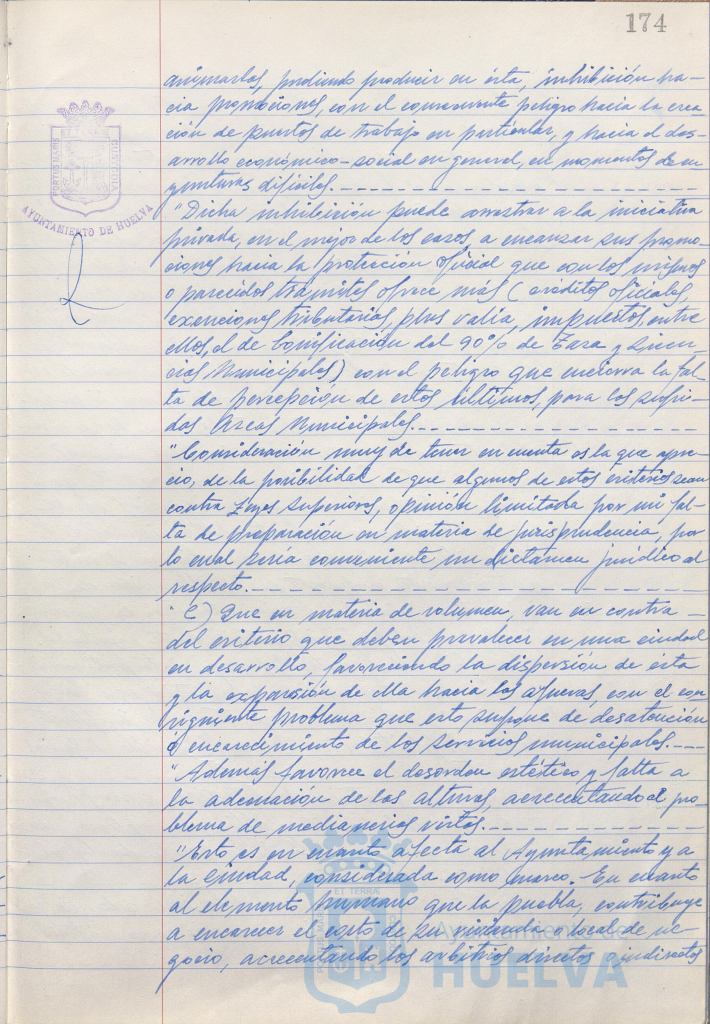 174
PORTUS MARIS ET TERRÆ CUSTODIA
AYUNTAMIENTO DE HUELVA
animarlos, pudiendo producir en ésta, inhibición ha-
cia promociones, con el consecuente peligro hacia la crea-
ción de puntos de trabajo en particular, y hacia el des-
arrollo económico-social en general, en momentos de co-
yunturas difíciles.
"Dicha inhibición puede arrastrar a la iniciativa
privada, en el mejor de los casos, a encauzar sus promo-
ciones hacia la protección oficial que con los mismos
o parecidos trámites ofrece más (créditos oficiales,
exenciones tributarias, plus valía, impuestos, entre
ellos, el de bonificación del 90% de Tasa y Licen-
cias Municipales), con el peligro que encierra la fal-
ta de percepción de estos últimos, para las sufri-
das Arcas Municipales.
"Consideración muy de tener en cuenta es la que apre-
cio, de la posibilidad de que algunos de estos criterios sean
contra Leyes Superiores, opinión limitada por mi fal-
ta de preparación en materia de jurisprudencia, por
lo cual sería conveniente un dictamen jurídico al
respecto.
"C) Que en materia de volumen, van en contra
del criterio que deben prevalecer en una ciudad
en desarrollo, favoreciendo la dispersión de ésta
y la expansión de ella hacia las afueras, con el con-
siguiente problema que esto supone de desatención
ó encarecimiento de los servicios municipales.
"Además favorece el desorden estético y falta a
la adecuación de las alturas, acrecentando el pro-
blema de medianerías vistas.
"Esto es en cuanto afecta al Ayuntamiento y a
la Ciudad, considerada como marco. En cuanto
al elemento humano que la puebla, contribuye
a encarecer el costo de su vivienda o local de ne-
gocio, acrecentando los arbitrios directos e indirectos
Ayuntamiento de
HUELVA